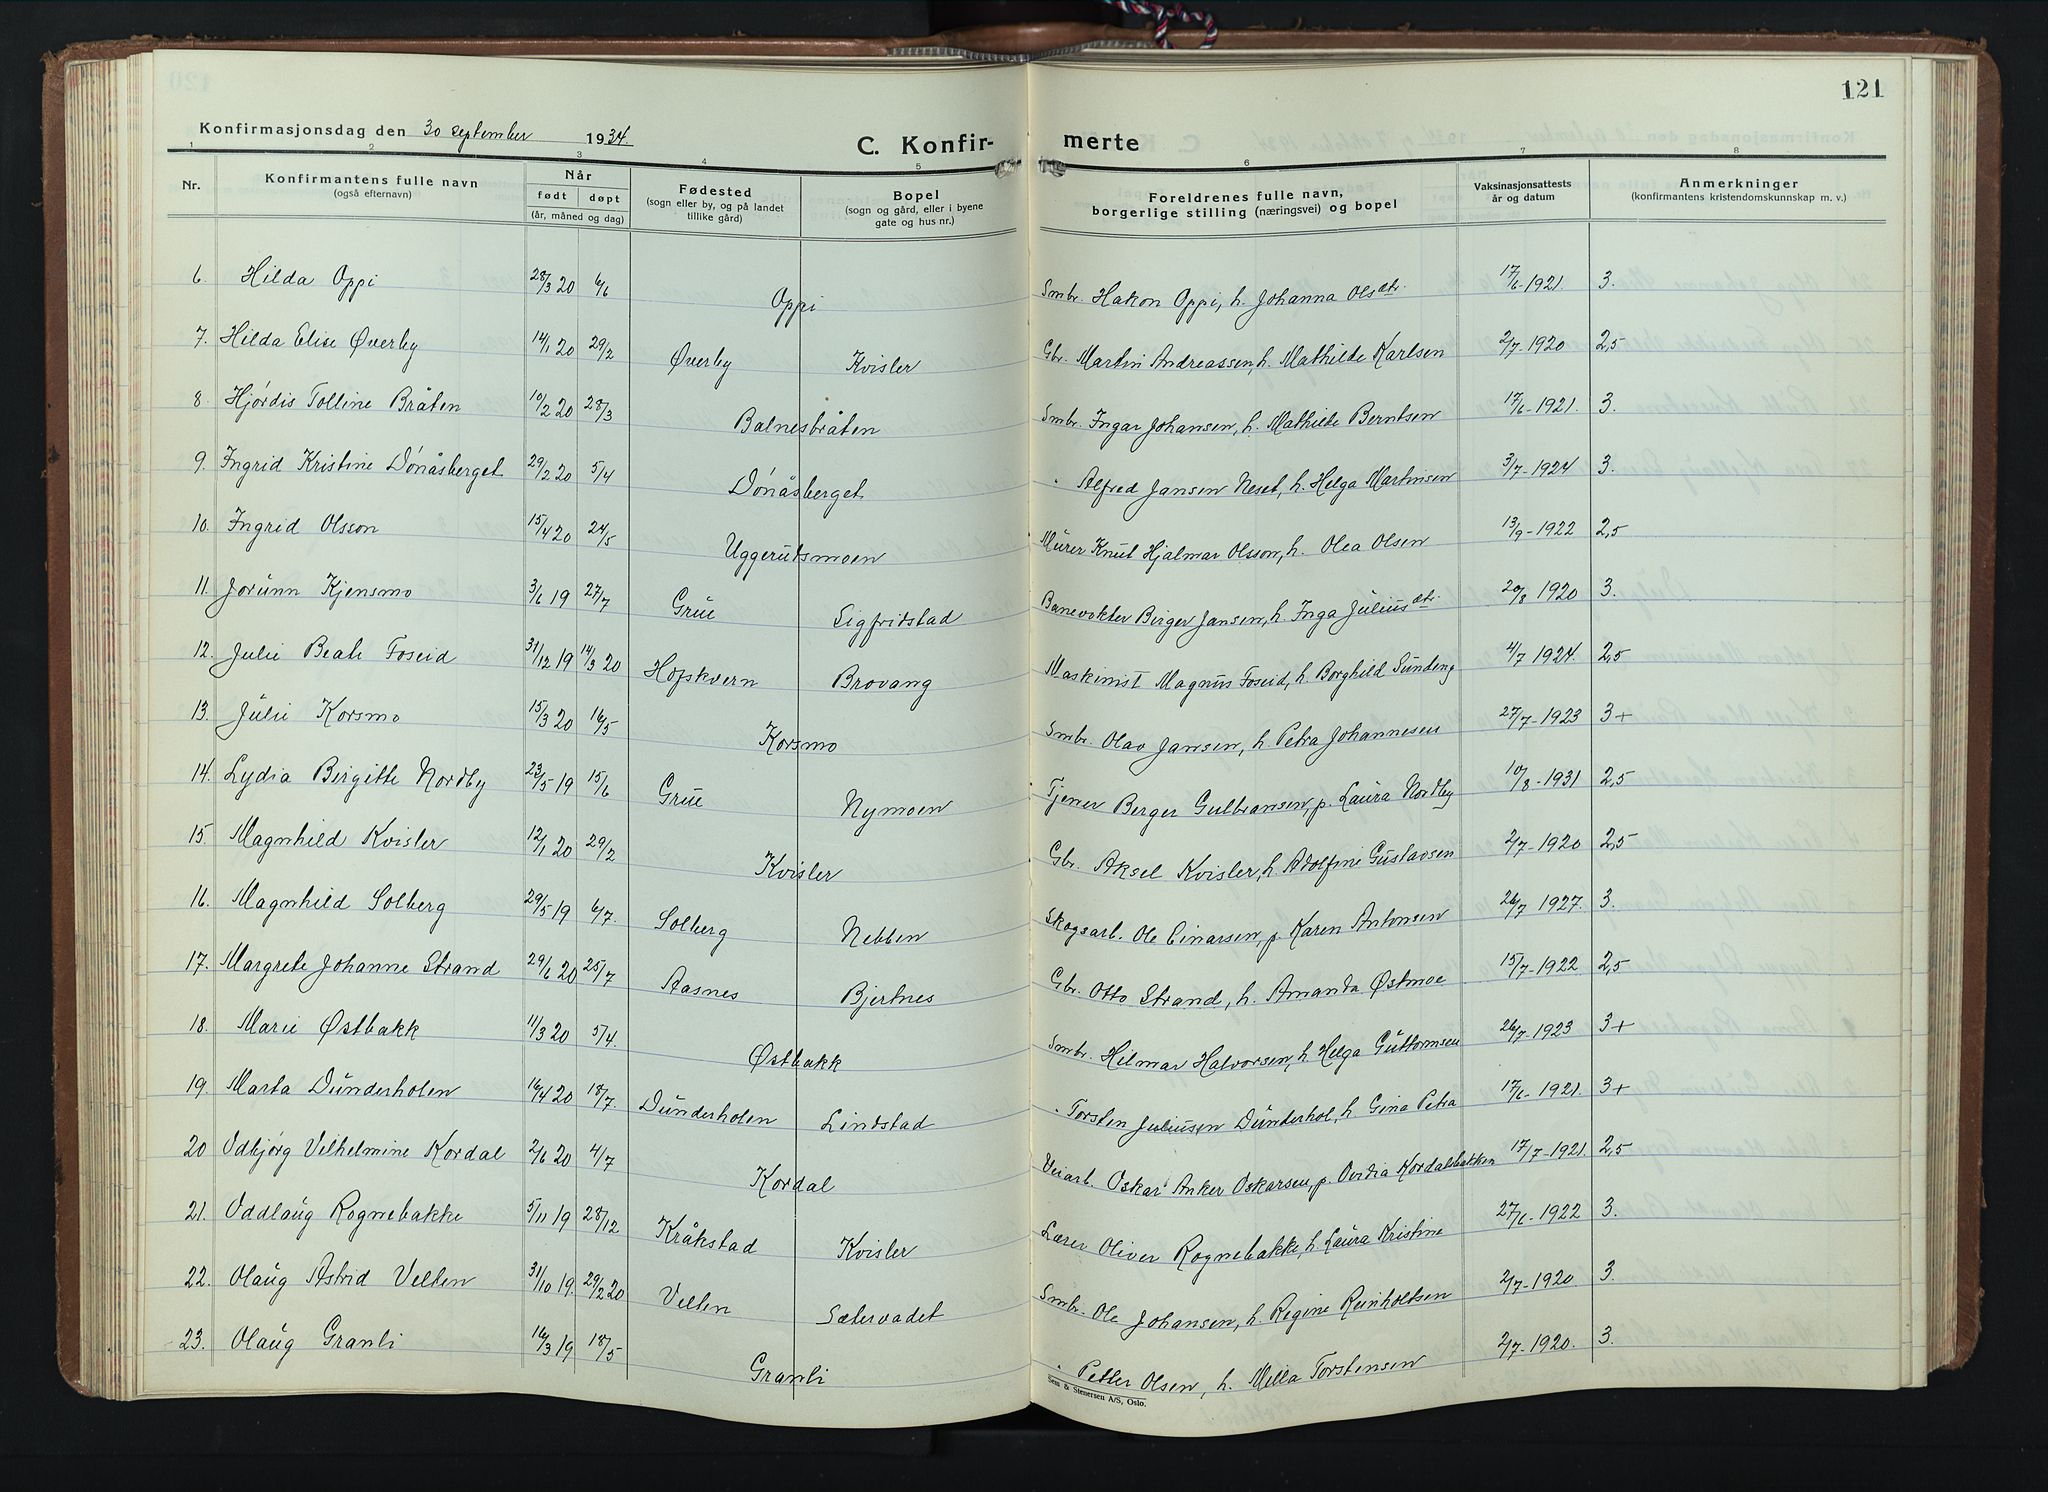 121
Konfirmasjonsdag den 30 september 1934.
C. Konfir- merte
1 2 3 4 5 6 7 8
Nr. Konfirmantens fulle navn (også efternavn) Når født døpt (år, måned og dag) Fødested (sogn eller by, og på landet tillike gård) Bopel (sogn og gård, eller i byene gate og hus nr.) Foreldrenes fulle navn, borgerlige stilling (næringsvei) og bopel Vaksinasjonsattests år og datum Anmerkninger (konfirmantens kristendomskunnskap m. v.)
6 Hilda Oppi 28/3 20 6/6 Oppi Smbr. Hakon Oppi, h. Johanna Olsdtr. 17/6-1921. 3.
7. Hilda Elise Øverby 14/1 20 29/2 Øverby Kvisler Gbr. Martin Andreassen, h. Mathilde Karlsen 2/7-1920 2,5
8. Hjørdis Tolline Bråten 10/2 20 28/3 Balnesbråten Smbr. Ingar Johansen, h. Mathilde Berntsen 17/6-1921. 3.
9. Ingrid Kristine Dønåsberget 29/2 20 5/4 Dønåsberget " Alfred Jansen Neset, h. Helga Martinsen 3/7-1924 3.
10. Ingrid Olsson 15/4 20 24/5 Uggerutsmoen Murer Knut Hjalmar Olsson, h. Olea Olsen 13/9-1922 2,5
11. Jorunn Kjensmo 3/6 19 27/7 Grue Sigfridstad Banevokter Birger Jansen, h. Inga Juliusdtr. 20/8 1920 3.
12. Julie Beate Foseid 31/12 19 14/3 20 Hofskvern Brovang Maskinist Magnus Foseid, h. Borghild Sundeng 4/7 1924. 2,5
13. Julie Korsmo 15/3 20 16/5 Korsmo Smbr. Olav Jansen, h. Petra Johannesen 27/7-1923 3+
14. Lydia Birgitte Nordby 23/5 19 15/6 Grue Nymoen Tjener Berger Gulbransen, p. Laura Nordby 10/8-1931 2,5
15 Magnhild Kvisler 12/1 20 29/2 Kvisler Gbr. Aksel Kvisler, h. Adolfine Gustavsen 2/7-1920 2,5
16. Magnhild Solberg 29/5 19 6/7. Solberg Nebben Skogsarb. Ole Einarsen, p. Karen Antonsen 26/7 1927. 3.
17. Margrete Johanne Strand 29/6 20 25/7 Aasnes Bjertnes Gbr. Otto Strand, h. Amanda Østmoe 15/7-1922 2,5
18. Marie Østbakk 11/3 20 5/4. Østbakk Smbr. Hilmar Halvorsen, h. Helga Guttormsen 26/7-1923 3+
19. Marta Dunderholen 16/4 20 18/7 Dunderholen Lindstad " Torsten Juliusen Dunderhol, h. Gina Petra 17/6-1921. 3+
20 Odbjørg Vilhelmine Kordal 2/6 20 4/7 Kordal Veiarb. Oskar Anker Oskarsen, p. Ovidia Kordalsbakken 17/7-1921. 2,5
21. Oddlaug Rognebakke 5/11 19 28/12 Kråkstad Kvisler Lærer Oliver Rognebakke, h. Laura Kristine 27/6-1922 3.
22. Olaug Astrid Velten 31/10 19. 29/2 20 Velten Sætervadet Smbr. Ole Johansen, h. Regine Reinholtsen 2/7-1920 3.
23. Olaug Granli 16/3 19 18/5 Granli " Petter Olsen, h. Milla Torstensen 2/7-1920. 3.
Sem & Stenersen A/S, Oslo.